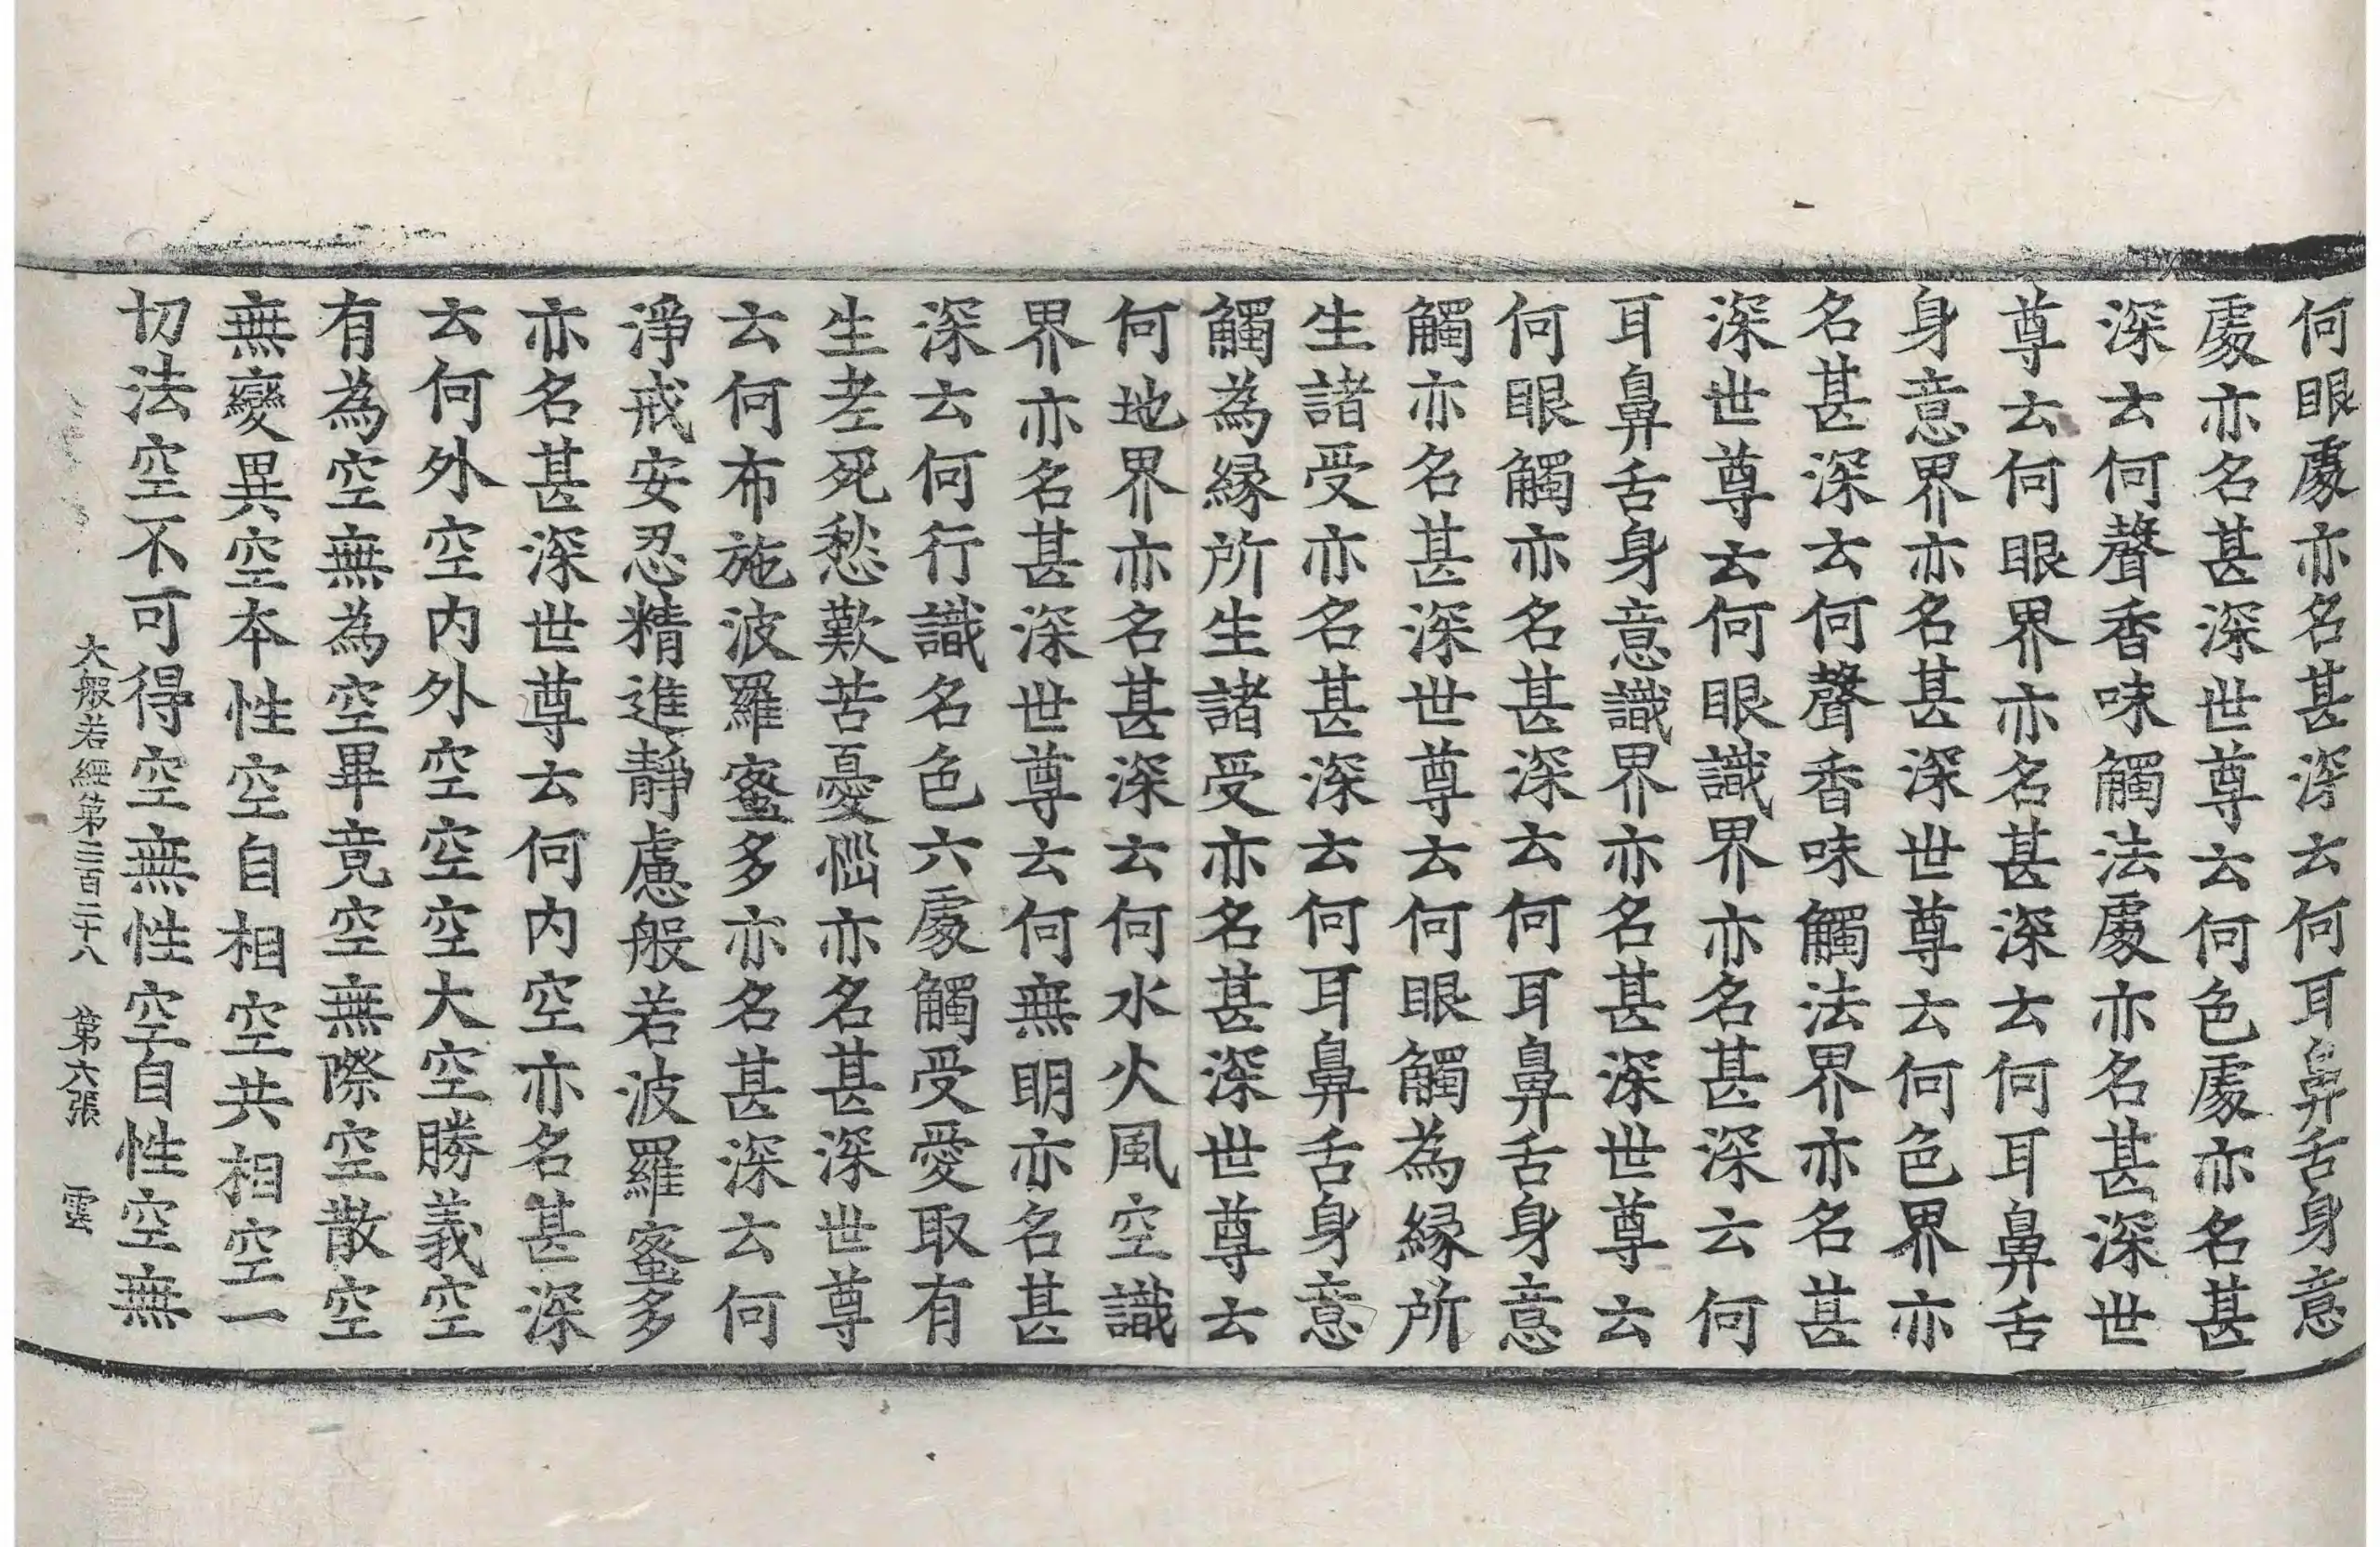 何眼處亦名甚深云何耳鼻舌身意
處亦名甚深世尊云何色處亦名甚
深云何聲香味觸法處亦名甚深世
尊云何眼界亦名甚深云何耳鼻舌
身意界亦名甚深世尊云何色界亦
名甚深云何聲香味觸法界亦名甚
深世尊云何眼識界亦名甚深云何
耳鼻舌身意識界亦名甚深世尊云
何眼觸亦名甚深云何耳鼻舌身意
觸亦名甚深世尊云何眼觸為緣所
生諸受亦名甚深云何耳鼻舌身意
觸為緣所生諸受亦名甚深世尊云
何地界亦名甚深云何水火風空識
界亦名甚深世尊云何無明亦名甚
深云何行識名色六處觸受愛取有
生老死愁歎苦憂惱亦名甚深世尊
云何布施波羅蜜多亦名甚深云何
淨戒安忍精進靜慮般若波羅蜜多
亦名甚深世尊云何內空亦名甚深
云何外空內外空空空大空勝義空
有為空無為空畢竟空無際空散空
無變異空本性空自相空共相空一
切法空不可得空無性空自性空無
大般若經第三百二十八　第六張　雲